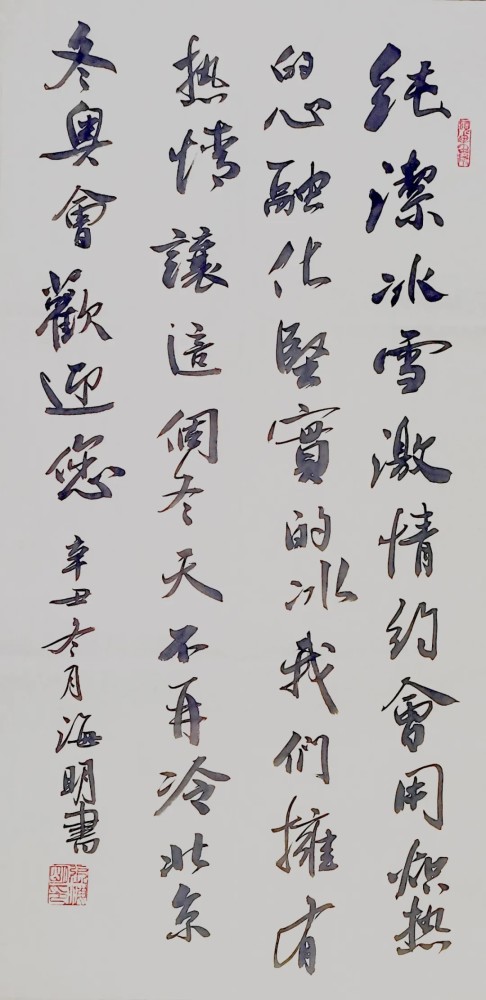 純潔冰雪激情約會用熾热
的心融化堅實的冰我们擁有
热情讓這個冬天不再冷北京
冬奥會歡迎您
辛丑冬月海明書